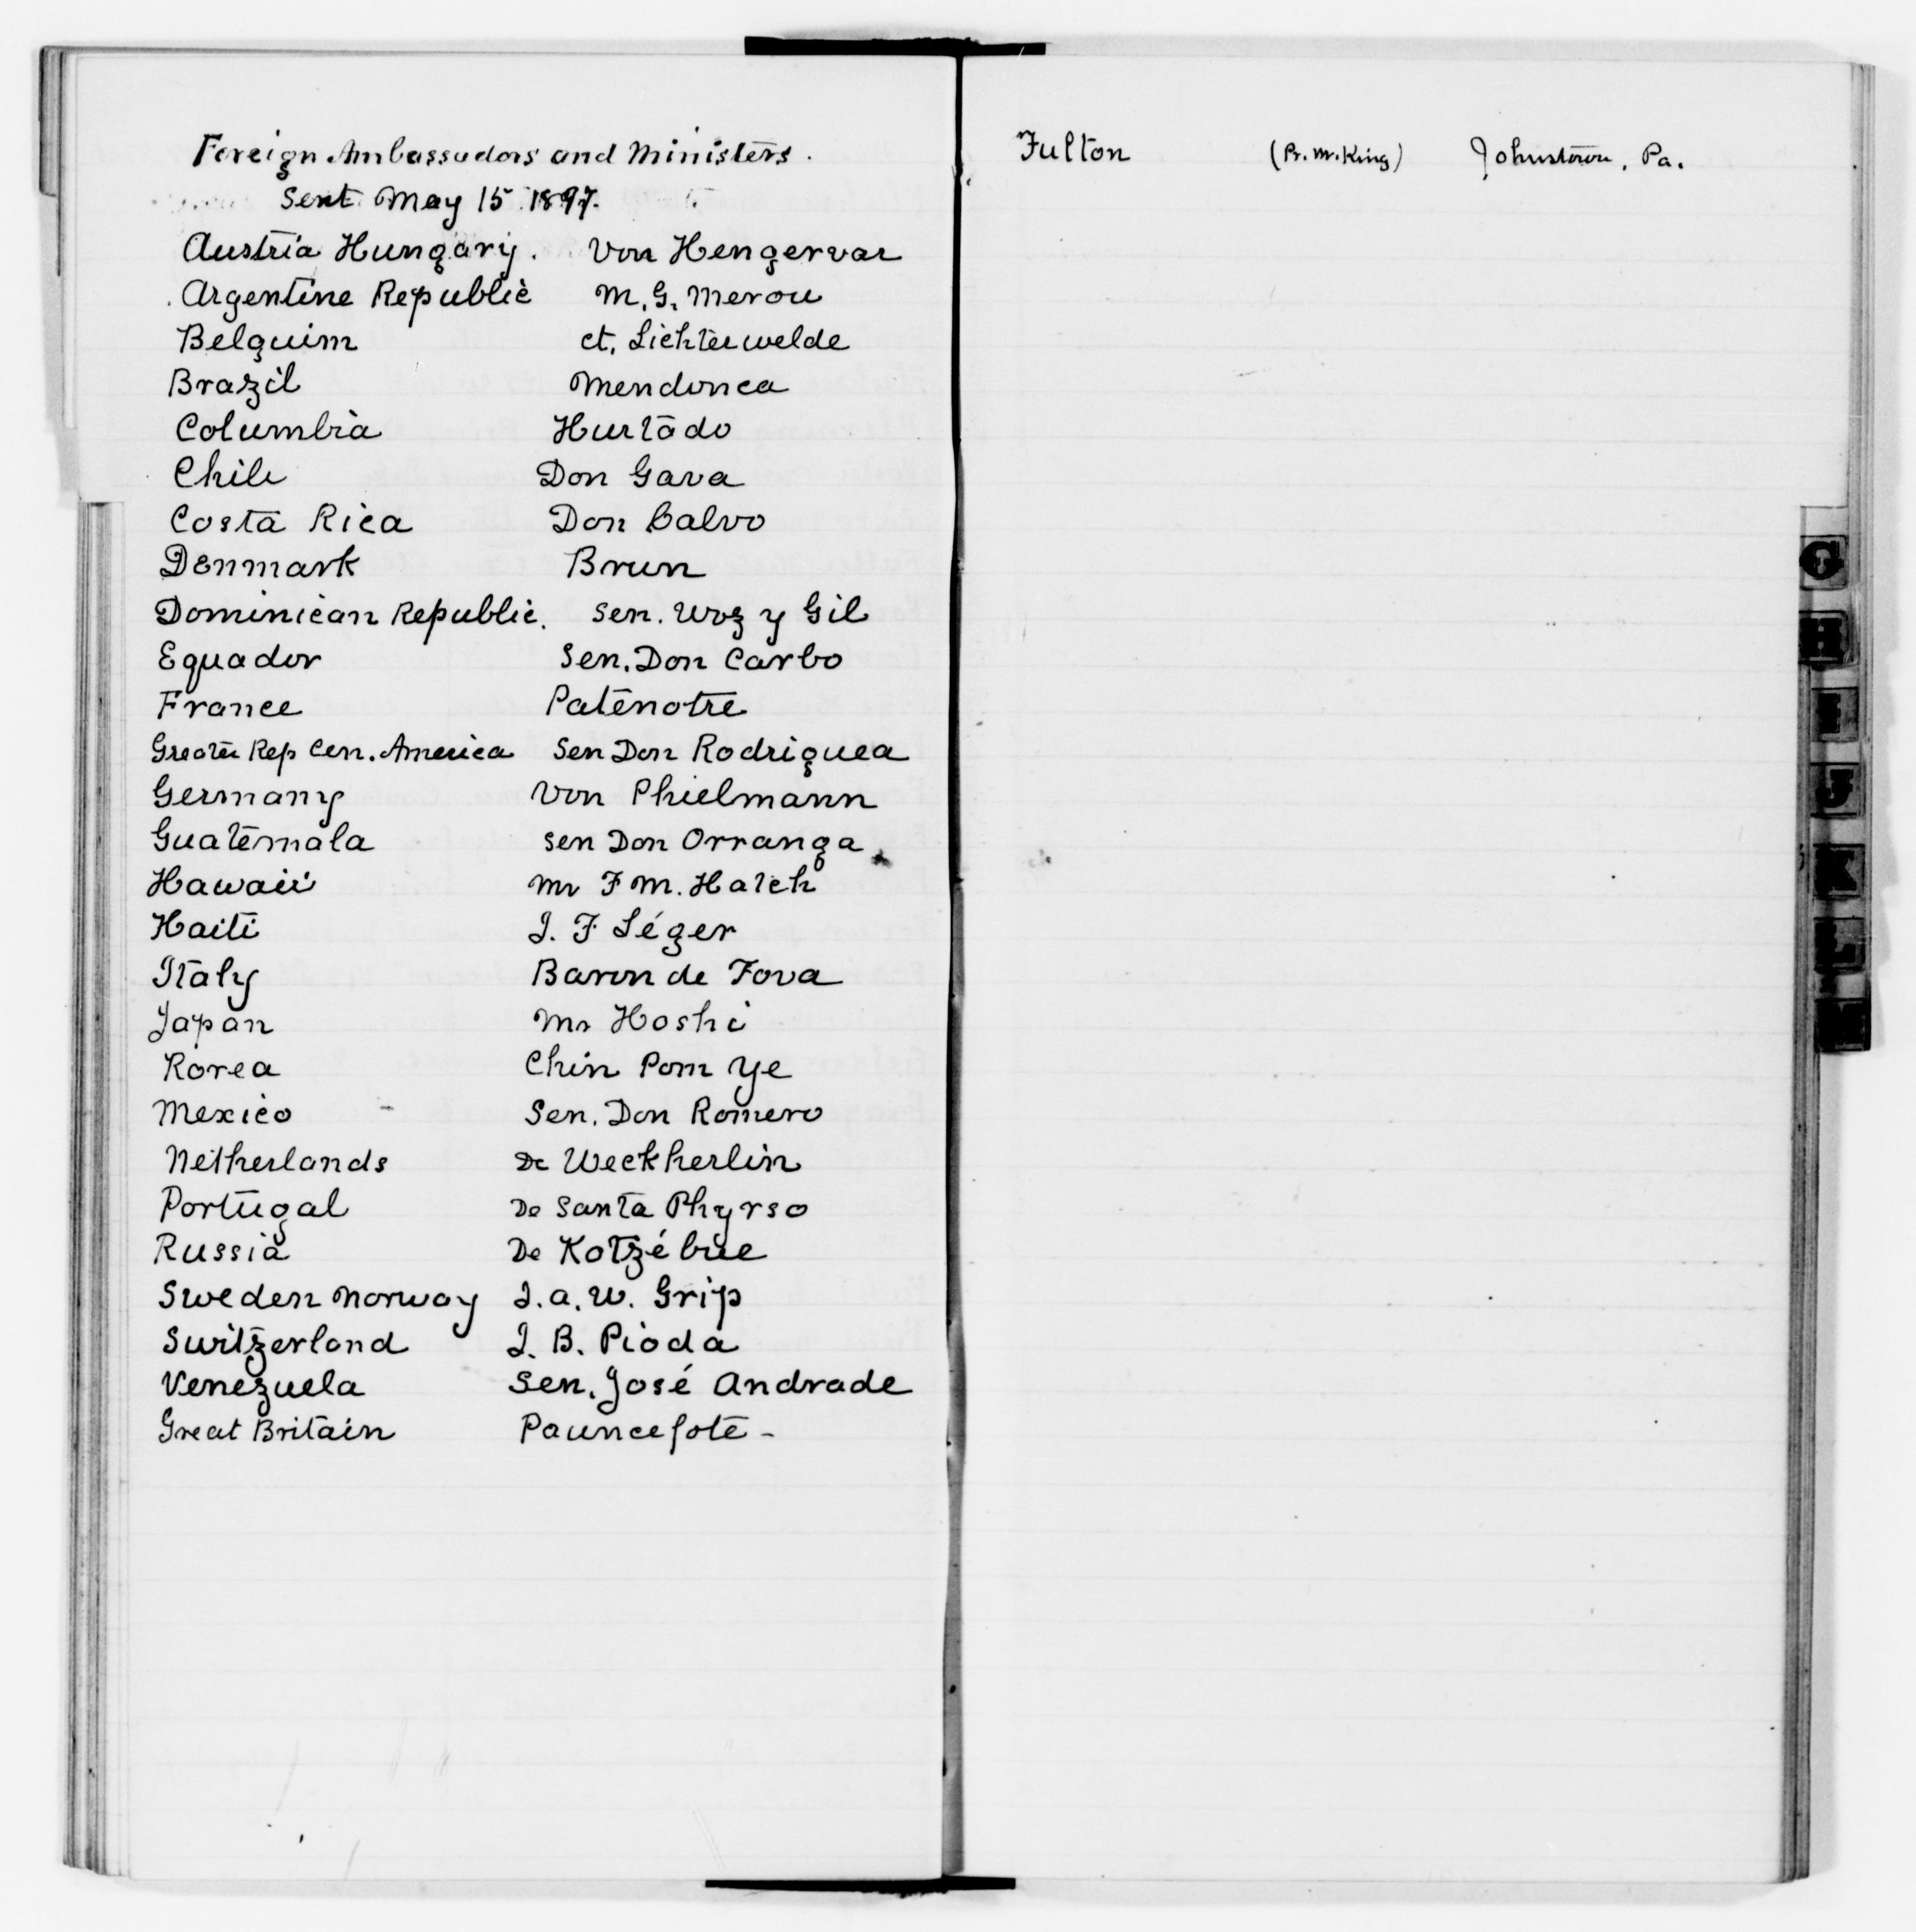 Foreign Ambassadors and Ministers.
Sent May 15 1897.
Austria Hungary. Von Hengervar
Argentine Republic M. G. Merou
Belguim ct. Lichterwelde
Brazil Mendonca
Columbia Hurtado
Chile Don Gava
Costa Rica Don Calvo
Denmark Brun
Dominican Republic. Sen. Woz y Gil
Equador Sen. Don Carbo
France Patenotre
Greater Rep Cen. America Sen Don Rodriguea
Germany Von Phielmann
Guatemala Sen Don Orranga
Hawaii Mr F M. Hatch
Haiti J. F Léger
Italy Baron de Fova
Japan Mr Hoshi
Korea Chin Pom Ye
Mexico - Sen. Don Romero
Netherlands De Weckherlin
Portugal De Santa Phyrso
Russia De Kotzébue
Sweden Norway J. A. W. Grip
Switzerland J. B. Pioda
Venezuela Sen. José Andrade
Great Britain Pauncefote -
Fulton (Pr. Mr. King) Johnstown, Pa.
G
H
I
J
K
L
M